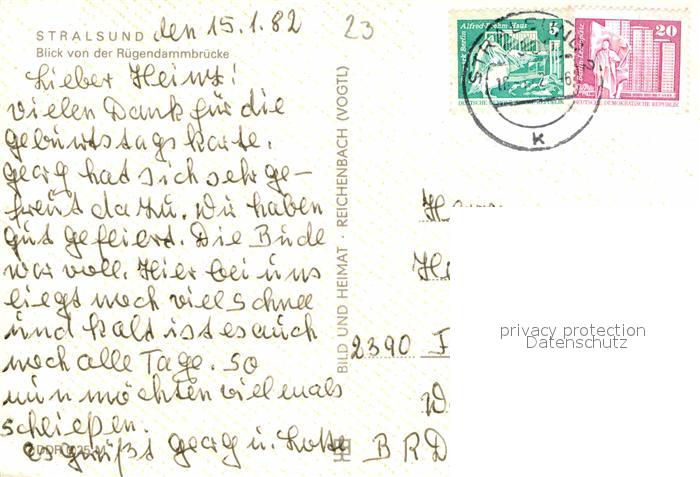 STRALSUND den 15.1.82
Blick von der Rügendammbrücke
23
Lieber Heinz!
vielen Dank für die
Geburtstagskarte.
Georg hat sich sehr ge-
freut dazu. Wir haben
gut gefeiert. Die Bude
war voll. Hier bei uns
liegt noch viel Schnee
und kalt ist es auch
noch alle Tage. So
nun möchten vielemals
schließen.
es grüßt Georg u. Lotte
BILD UND HEIMAT · REICHENBACH (VOGTL)
Alfred-Brehm-Haus
5
DEUTSCHE DEMOKRATISCHE REPUBLIK
20
DEUTSCHE DEMOKRATISCHE REPUBLIK
STRALSUND
K
2390 F
BRD
privacy protection
Datenschutz